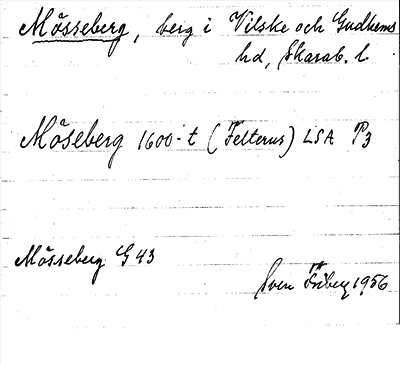 Mösseberg, berg i Vilske och Gudhems
hd, Skarab. l.
Möseberg 1600-t (Felterus) LSA P3
Mösseberg G 43
Sven Friberg 1956